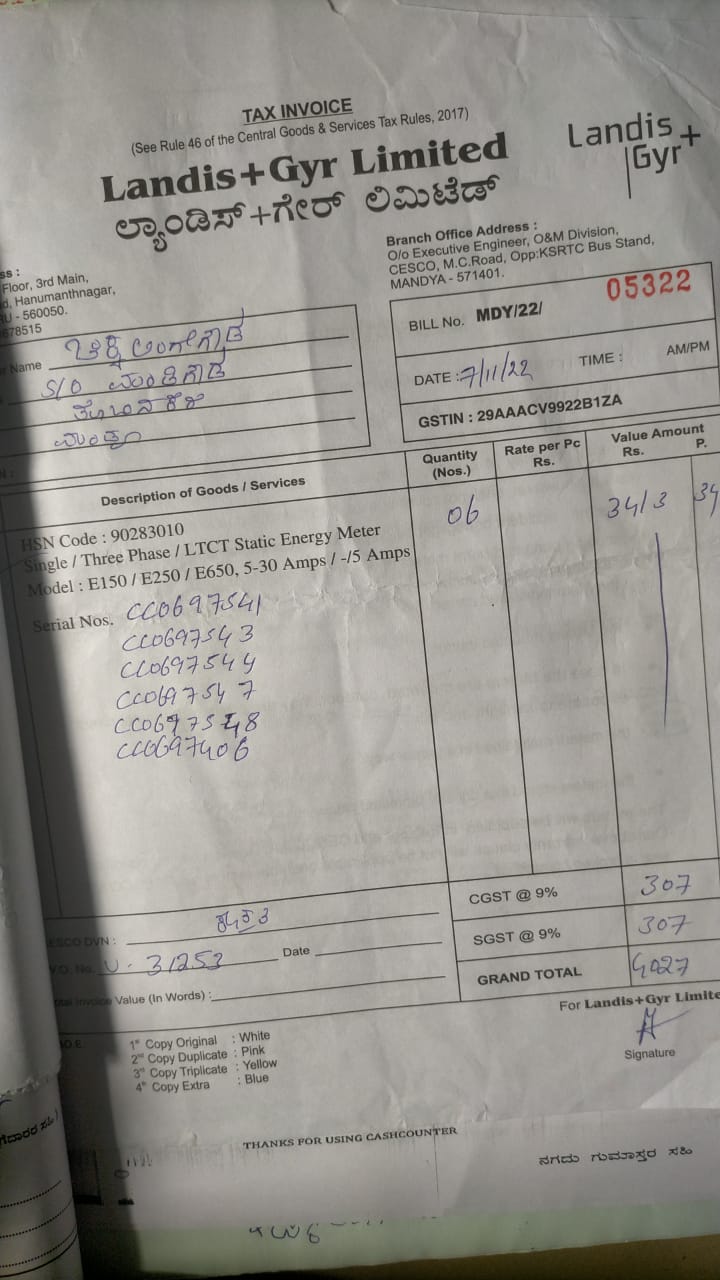 TAX INVOICE
(See Rule 46 of the Central Goods & Services Tax Rules, 2017)
Landis+Gyr Limited
ಲ್ಯಾಂಡಿಸ್+ಗೇರ್ ಲಿಮಿಟೆಡ್
Landis+
Gyr
ss :
Floor, 3rd Main,
d, Hanumanthnagar,
RU - 560050.
678515
Branch Office Address :
O/o Executive Engineer, O&M Division,
CESCO, M.C.Road, Opp:KSRTC Bus Stand,
MANDYA - 571401.
BILL No. MDY/22/ 05322
DATE : 7/11/22 TIME : AM/PM
GSTIN : 29AAACV9922B1ZA
Name
S/O
N :
Description of Goods / Services
Quantity
(Nos.)
Rate per Pc
Rs.
Value Amount
Rs. P.
HSN Code : 90283010
Single / Three Phase / LTCT Static Energy Meter
Model : E150 / E250 / E650, 5-30 Amps / -/5 Amps
06 3413 34
Serial Nos. CC0697541
CC0697543
CC0697544
CC0697547
CC0697548
CC0697406
CGST @ 9% 307
SGST @ 9% 307
GRAND TOTAL 4027
ESCO DVN :
No. U - 31253 Date
Invoice Value (In Words) :
For Landis+Gyr Limite
Signature
O.E.
1st Copy Original : White
2nd Copy Duplicate : Pink
3rd Copy Triplicate : Yellow
4th Copy Extra : Blue
THANKS FOR USING CASHCOUNTER
ನಗದು ಗುಮಾಸ್ತರ ಸಹಿ